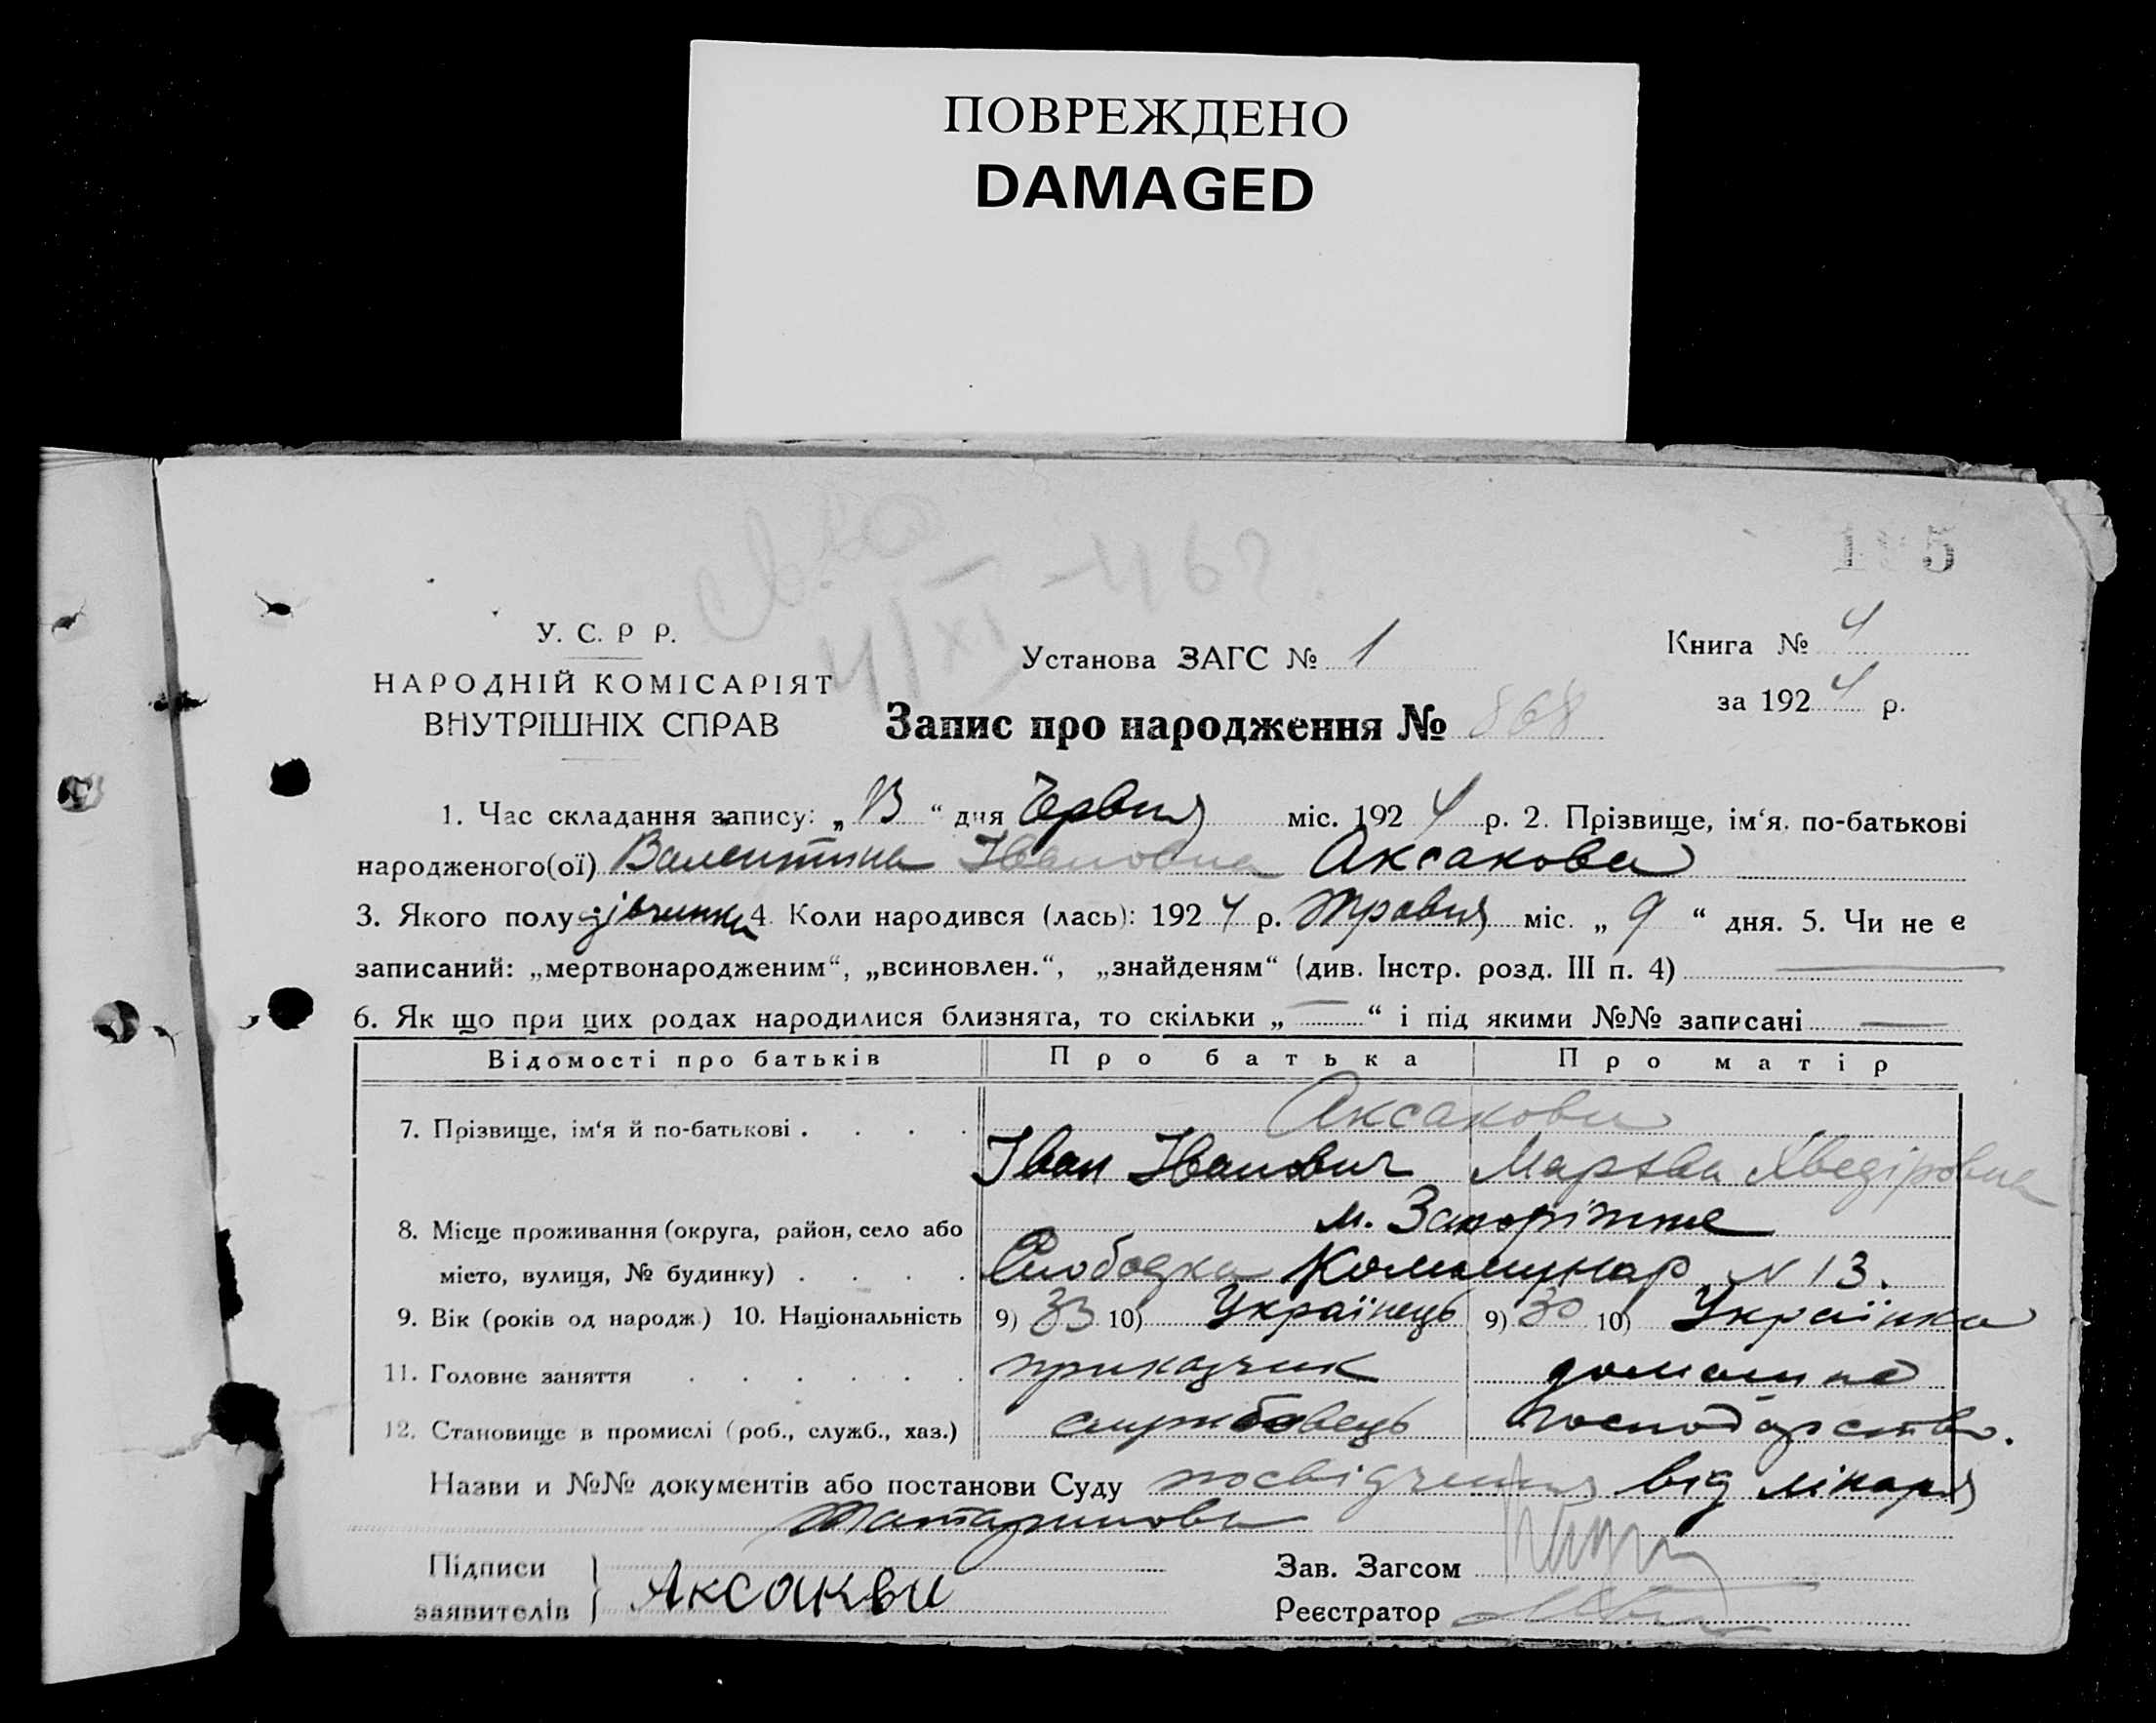 ПОВРЕЖДЕНО
DAMAGED
У. С. Р Р.
НАРОДНІЙ КОМІСАРІЯТ
ВНУТРІШНІХ СПРАВ
Установа ЗАГС № 1
Книга № 4
за 1924 р.
Запис про народження № 868
1. Час складання запису: „13“ дня Червня міс. 1924 р. 2. Прізвище, ім‘я, по-батькові
народженого(ої) Валентина Івановна Аксакова
3. Якого полу дівчинка 4. Коли народився (лась): 1924 р. Травня міс. „9“ дня. 5. Чи не є
записаний: „мертвонародженим“, „всиновлен.“, „знайденям“ (див. Інстр. розд. III п. 4) —
6. Як що при цих родах народилися близнята, то скільки „—“ і під якими №№ записані —
Відомості про батьків Про батька Про матір
7. Прізвище, ім‘я й по-батькові . . . . Аксакови
Іван Іванович Марфа Хведіровна
8. Місце проживання (округа, район, село або м. Запоріжжє
місто, вулиця, № будинку) . . . . Слободка Коммунар N 13.
9. Вік (років од народж.) 10. Національність 9) 33 10) Українець 9) 30 10) Українка
11. Головне заняття . . . . . . приказчик домашнє
12. Становище в промислі (роб., служб., хаз.) службовець господарство.
Назви и №№ документів або постанови Суду посвідчення від лікаря
Татаринова
Підписи
заявителів } Аксакви
Зав. Загсом
Реєстратор